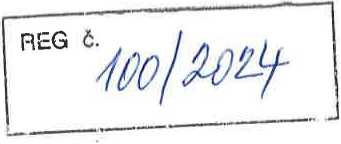 REG č.
100/2024